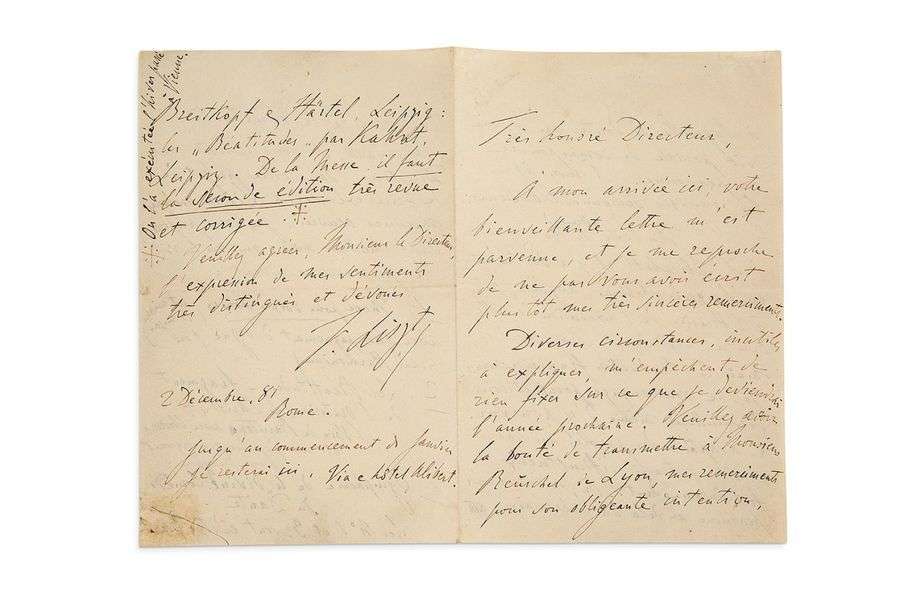 Très honoré Directeur,
A mon arrivée ici, votre
bienveillante lettre m'est
parvenue, et je me reproche
de ne pas vous avoir écrit
plus tôt mes très sincères remerciments.
Diverses circonstances, inutiles
à expliquer, m'empêchent de
rien fixer sur ce que je deviendrai
l'année prochaine. Veuillez avoir
la bonté de transmettre à Monsieur
Reuschel de Lyon, mes remerciments
pour son obligeante intention,
Breitkopf & Härtel, Leipzig:
les „Beatitudes" par Kahnt,
Leipzig. De la Messe il faut
la seconde édition très revue
et corrigée. ⁜
Veuillez agréer, Monsieur le Directeur,
l'expression de mes sentiments
très distingués et dévoués
F. Liszt
2 Décembre, 81
Rome.
Jusqu'au commencement de Janvier
je resterai ici. Via e hôtel Alibert.
⁜ On l'a exécutée l'hiver passé
à Vienne.